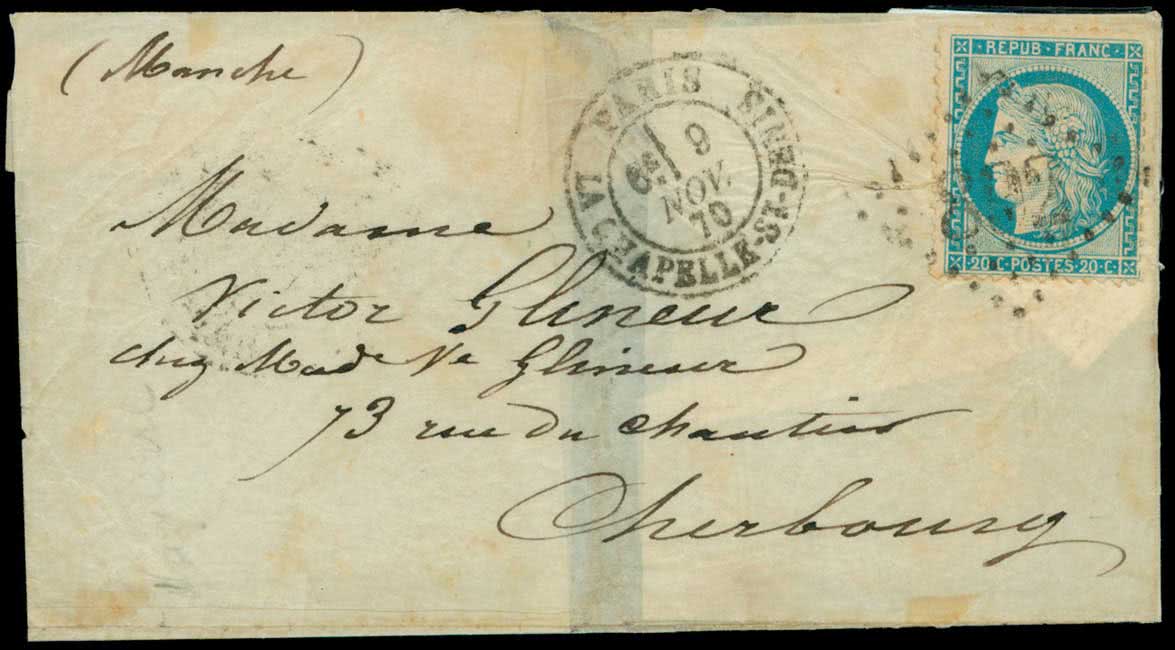 (Manche)
REPUB·FRANC·
20·C·POSTES·20·C·
PARIS LA CHAPELLE-ST-DENIS
6E/ 9
NOV.
70
Madame
Victor Glineur
chez Made Ve Glineur
73 rue du Chantier
Cherbourg